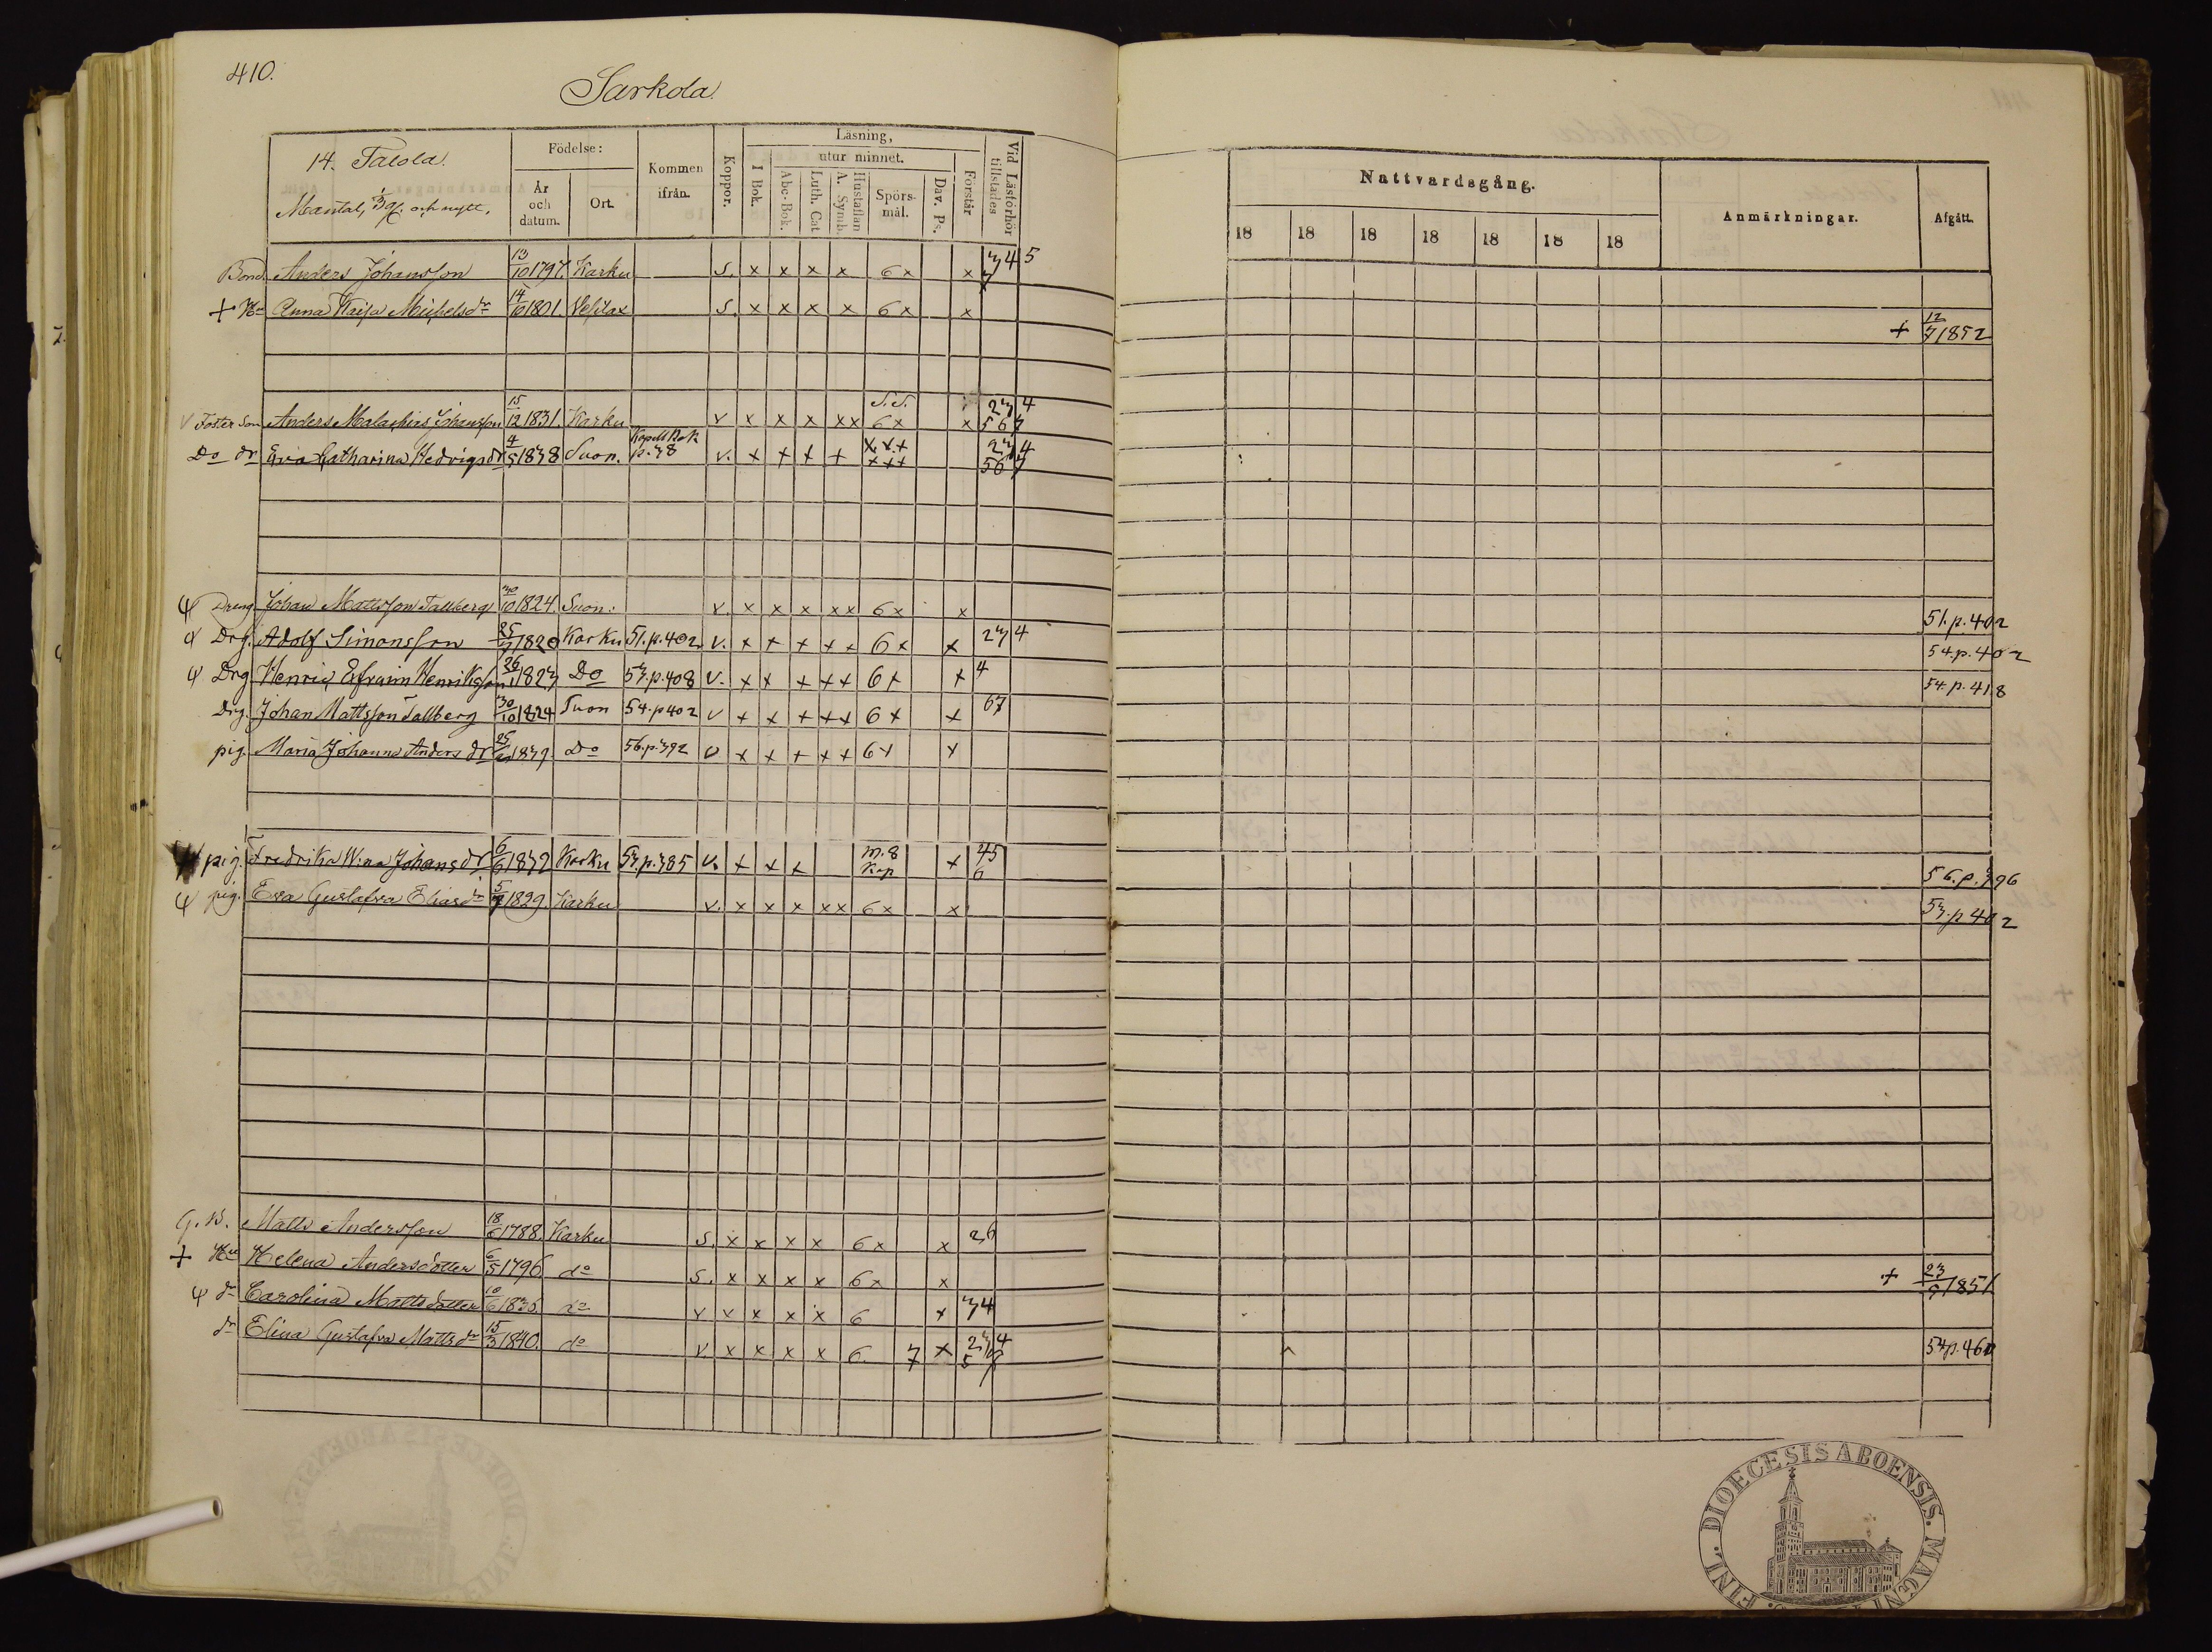 410.
Sarkola.
14. Talola.
Mantal, 1/3 gl. och nytt.
Födelse:
År och datum.
Ort.
Kommen ifrån.
Koppor.
Läsning,
I Bok.
utur minnet.
Abc-Bok.
Luth. Cat
Hustaflan A. Symb.
Spörs-mål.
Dav. Ps.
Förstår
Vid Läsförhör tillstädes
Nattvardsgång.
18 18 18 18 18 18 18
Anmärkningar.
Afgått.
Bond. Anders Johansson 13/10 1797. Karku S. x x x x 6x x 3 4 5 7
+ Hu Anna Kaisa Michelsdr 14/10 1801. Vesilax S. x x x x 6x x + 12/7 1852
v Foster Son Anders Malachias Johansson 15/12 1831. Karku v x x x xx S.S. 6x x 23 4 567
Do dr Eva Catharina Hedvigsdr 4/5 1838 Suon. Kapell Bok p.38 v. + + + + x.x.+ +++ 23 4 567
ψ Dreng. Johan Mattsson Tallberg 30/10 1824. Suon. v. x x x xx 6x x 51.p.402
ψ Drg. Adolf Simonsson 25/7 1820 Karku 51.p.402 v. + + + ++ 6+ x 23 4 54.p.402
ψ Drg Henric Efraim Henriksson 26/1 1823 Do 53.p.408 v. + + + ++ 6+ + 4 54.p.418
Drg. Johan Mattsson Tallberg 30/10 1824 Suon 54.p402 v + + + ++ 6+ + 67
pig. Maria Johanna Andersdr 25/6 1839. Do 56.p.392 v. + + + ++ 6+ +
ψ pig. Fredrika W:na Johansdr 6/6 1832 Karku 53.p.385 v. + + + m.8 Kap + 45 6 56.p.396
ψ pig. Eva Gustafva Eliasdr 5/7 1829. Karku v. x x x xx 6x x 53.p 402
G. B. Matts Andersson 18/6 1788. Karku S. x x x x 6x x 26
+ Hu Helena Andersdotter 6/5 1796. do S. x x x x 6x x + 23/9 1851
ψ dr Carolina Mattsdotter 10/6 1835. do v v x x x 6 x 34
dr Elina Gustafva Mattsdr 15/3 1840. do v. x x x x 6. 7 x 23 4 5 54p.460
DIOECESIS ABOENSIS. MAGNI FINL.